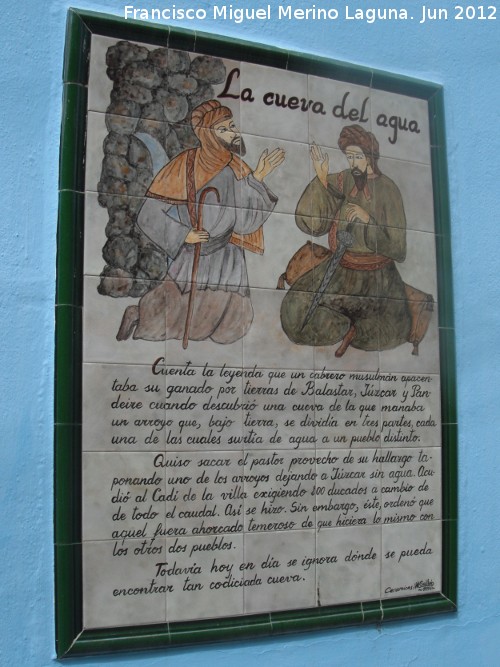 Francisco Miguel Merino Laguna. Jun 2012
La cueva del agua
Cuenta la leyenda que un cabrero musulmán apacen-
taba su ganado por tierras de Balastar, Júzcar y Pan-
deire cuando descubrió una cueva de la que manaba
un arroyo que, bajo tierra, se dividía en tres partes, cada
una de las cuales surtía de agua a un pueblo distinto.
Quiso sacar el pastor provecho de su hallazgo ta-
ponando uno de los arroyos dejando a Júzcar sin agua. Acu-
dió al Cadí de la villa exigiendo 200 ducados a cambio de
de todo el caudal. Así se hizo. Sin embargo, éste, ordenó que
aquel fuera ahorcado temeroso de que hiciera lo mismo con
los otros dos pueblos.
Todavía hoy en día se ignora dónde se pueda
encontrar tan codiciada cueva.